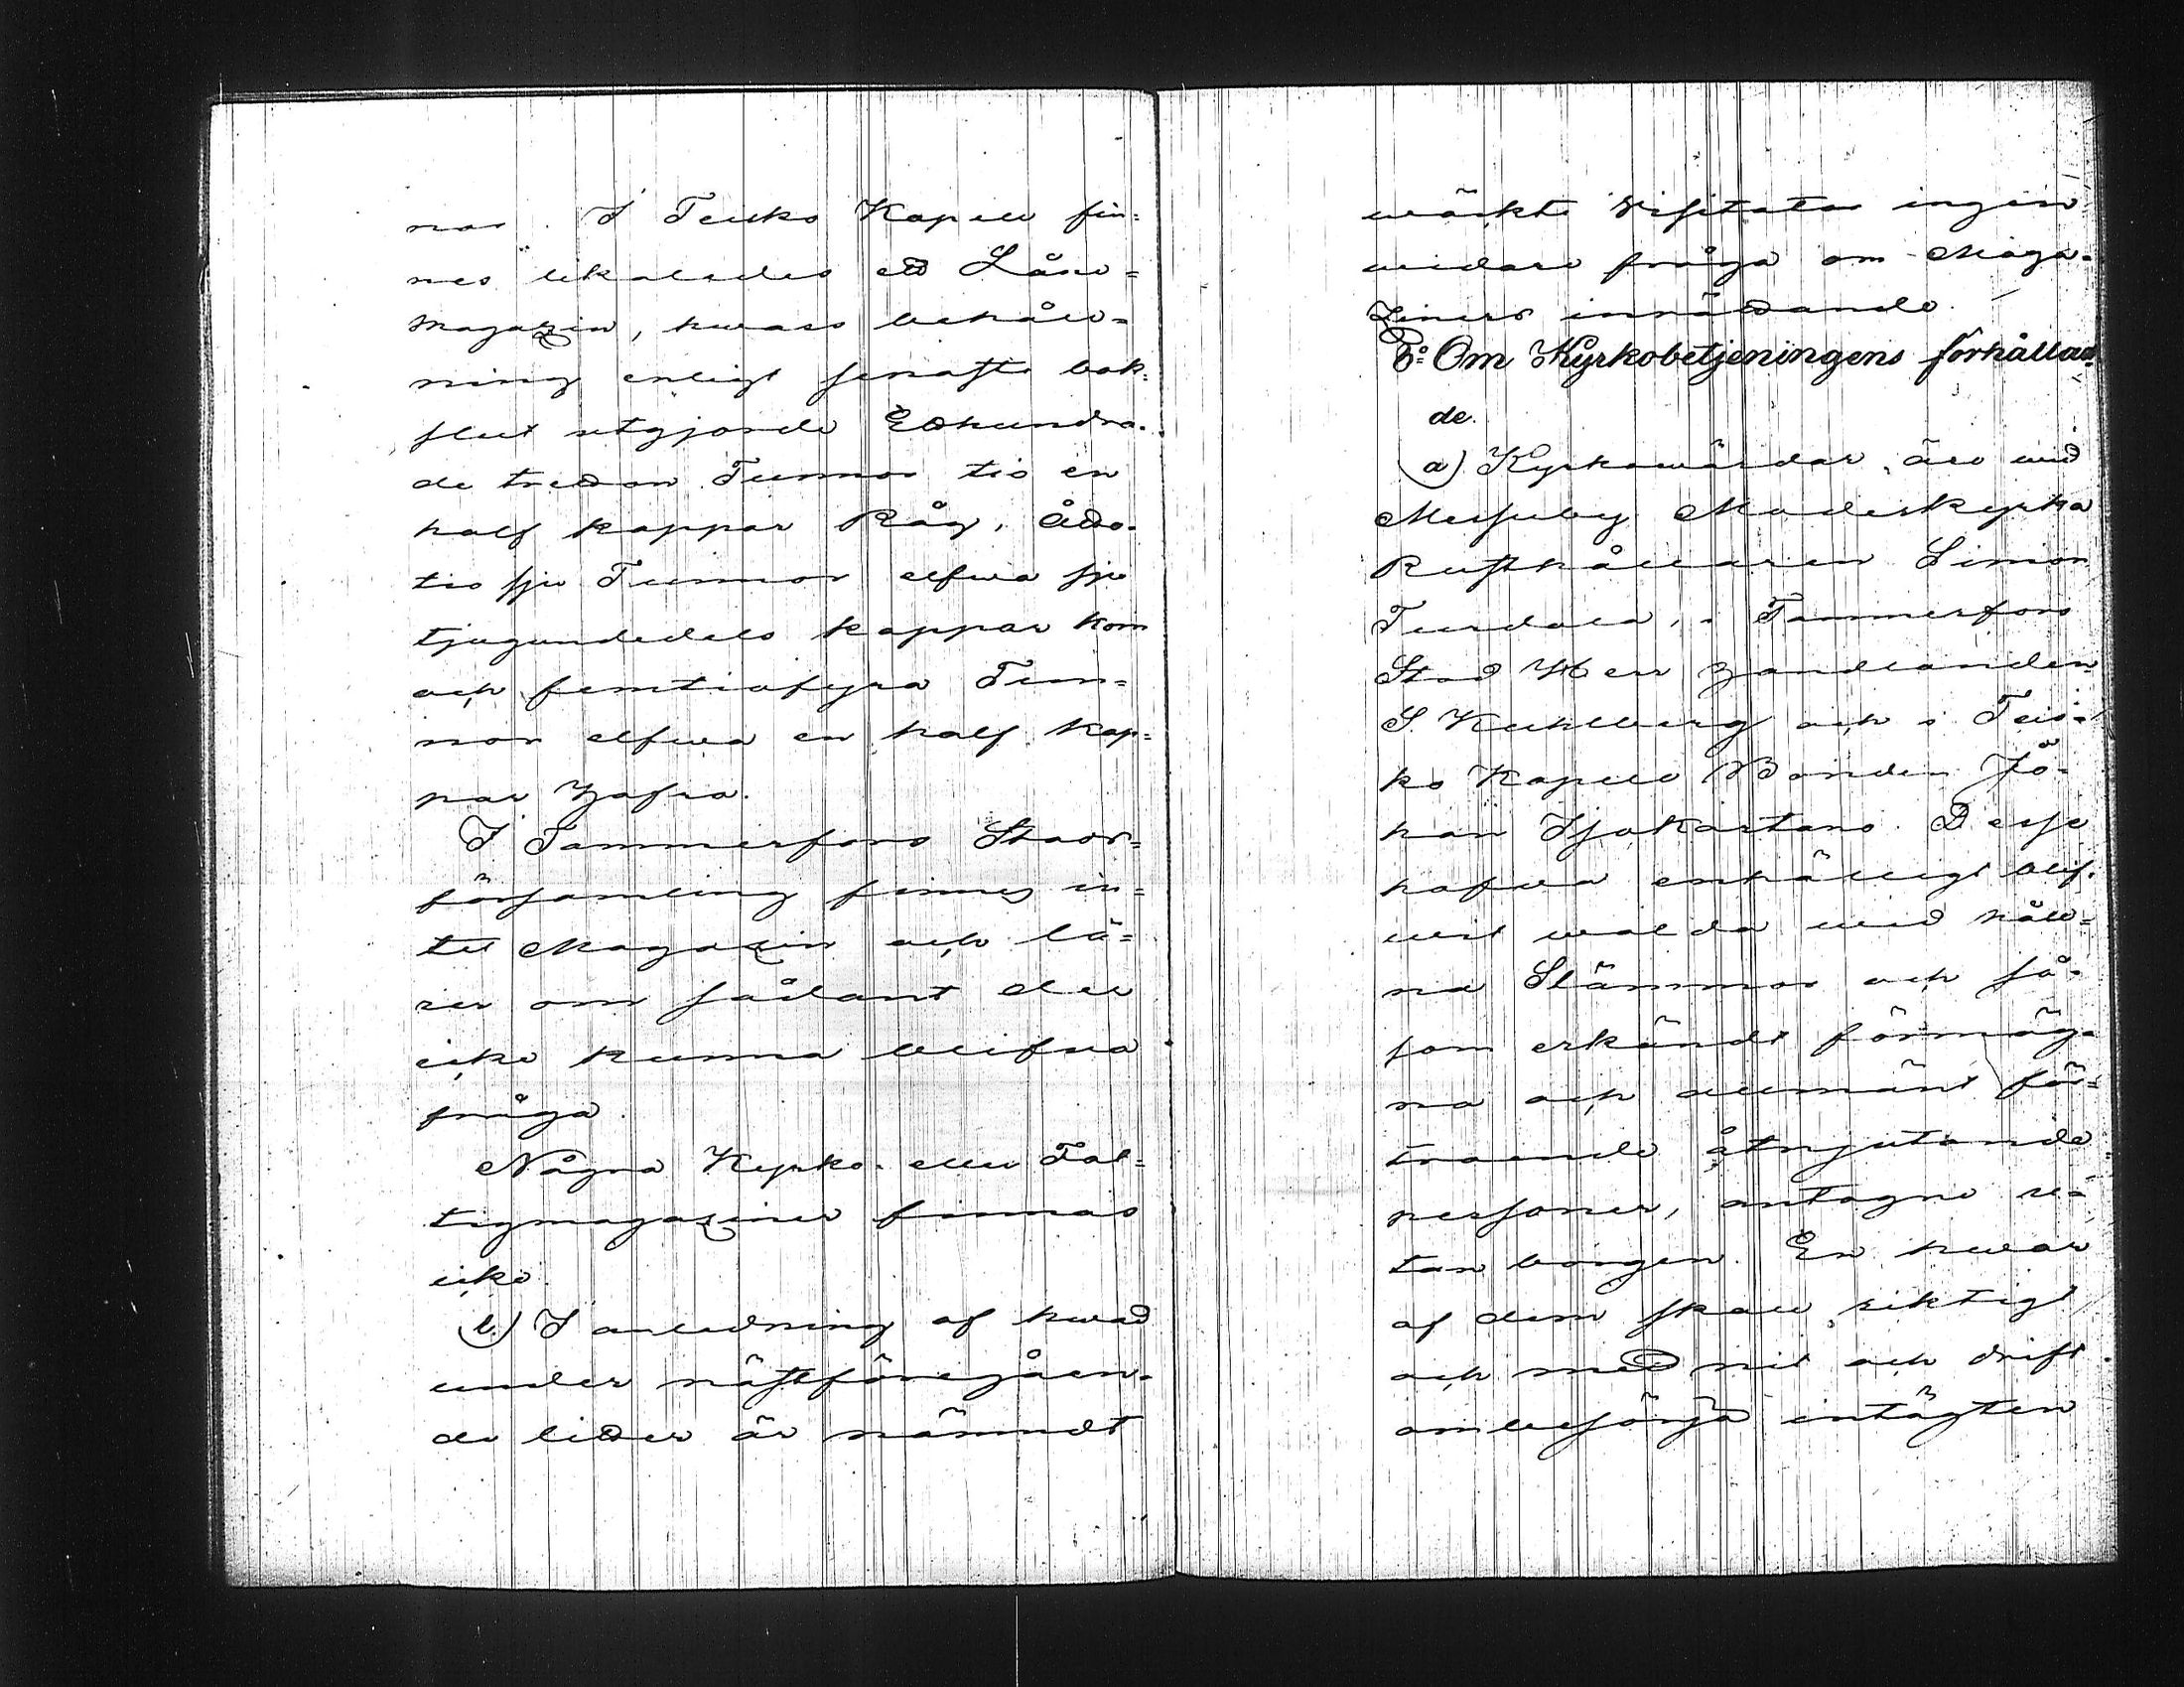 nar. I Teisko Kapell fin=
nes likaledes ett Låne=
magazin, hwars behåll=
ning enligt senaste bok=
slut utgjorde Etthundra-
de tretton Tunnor tio en
half kappar Råg, åtta-
tio sju Tunnor elfwa sju
tjugundedels kappar korn
och femtiofyra Tun=
nor elfwa en half kap=
par Hafra.
I Tammerfors Stads=
församling finnes in=
tet Magazin och lä=
rer om sådant der
icke kunna blifwa
fråga.
Några Kyrko- eller Fat=
tigmagaziner finnas
icke.
l) I anledning af hwad
under nästföregåen=
de litter är nämndt
wäckte Visitator ingen
widare fråga om Maga-
ziners inrättande.
Om Kyrkobetjeningens förhållan=
de.
a) Kyrkowärdar äro wid
Messuby Moderkyrka
Rusthållaren Simon
Turdala, i Tammerfors
Stad Herr Handlanden
S. Kuhlberg och i Teis=
ko Kapell Bonden Jo-
han Isokartano. Desse
hafwa enhälligt blif-
wit walda wid håll=
na Stämmor och så-
som erkändt förmög-
na och allmänt för=
troende åtnjutande
personer, antagne u=
tan borgen. En hwar
af dem skall riktigt
och med nit och drift
ombesörja intägten